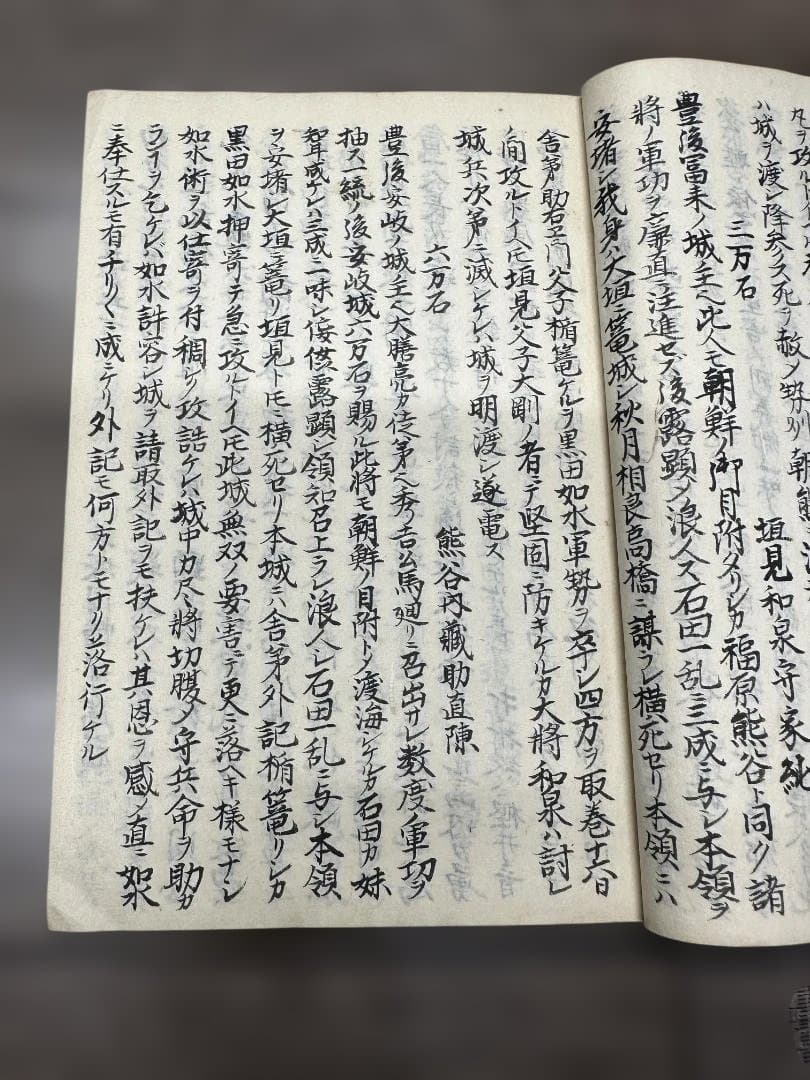 ハ城ヲ渡シ降参ノス死ヲ赦メ
三万石
垣見和泉守家純
豊後冨来ノ城主ヘ此人モ朝鮮ノ御目附タリシカ福原熊谷ト同ク諸
將ノ軍功ヲ廉直ニ注進セズ後露顕メ浪人ス石田一乱三成ニ与シ本領ヲ
安堵シ我身ハ大垣ニ篭城シ秋月相良高橋ニ謀ラレ横死セリ本領ニハ
舎弟助右卫門父子楯篭ケルヲ黒田如水軍勢ヲ卒シ四方ヲ取巻十六日
ノ間攻ルトイヘモ垣見父子大剛ノ者ニテ堅固ニ防キケルカ大將和泉ハ討レ
城兵次第ニ滅シケレハ城ヲ明渡シ遂電ス
六万石
熊谷内藏助直陳
豊後安岐ノ城主ヘ大膳亮カ従弟ヘ秀吉公馬廻リニ召出サレ数度ノ軍功ヲ
抽ス一統ノ後安岐城六万石ヲ賜ル此將モ朝鮮ノ目附トメ渡海シケルカ石田カ妹
聟成ケレハ三成ニ一味シ侫奸露顕シ領知召上ラレ浪人シ石田一乱ニ与シ本領
ヲ安堵シ大垣ニ篭リ垣見トモニ横死セリ本城ニハ舎弟外記楯篭リシカ
黒田如水押寄テ急ニ攻ルトイヘモ此城無双ノ要害ニテ更ニ落ヘキ様モナシ
如水術ヲ以仕寄ヲ付稠シク攻詰ケレハ城中力尽將切腹メ守兵命ヲ助カ
ランヿヲ乞ケレバ如水許容シ城ヲ請取外記ヲモ扶ケレハ其恩ヲ感メ直ニ如水
ニ奉仕スルモ有チリ〱ニ成ニケリ外記モ何方トモナリ落行ケル